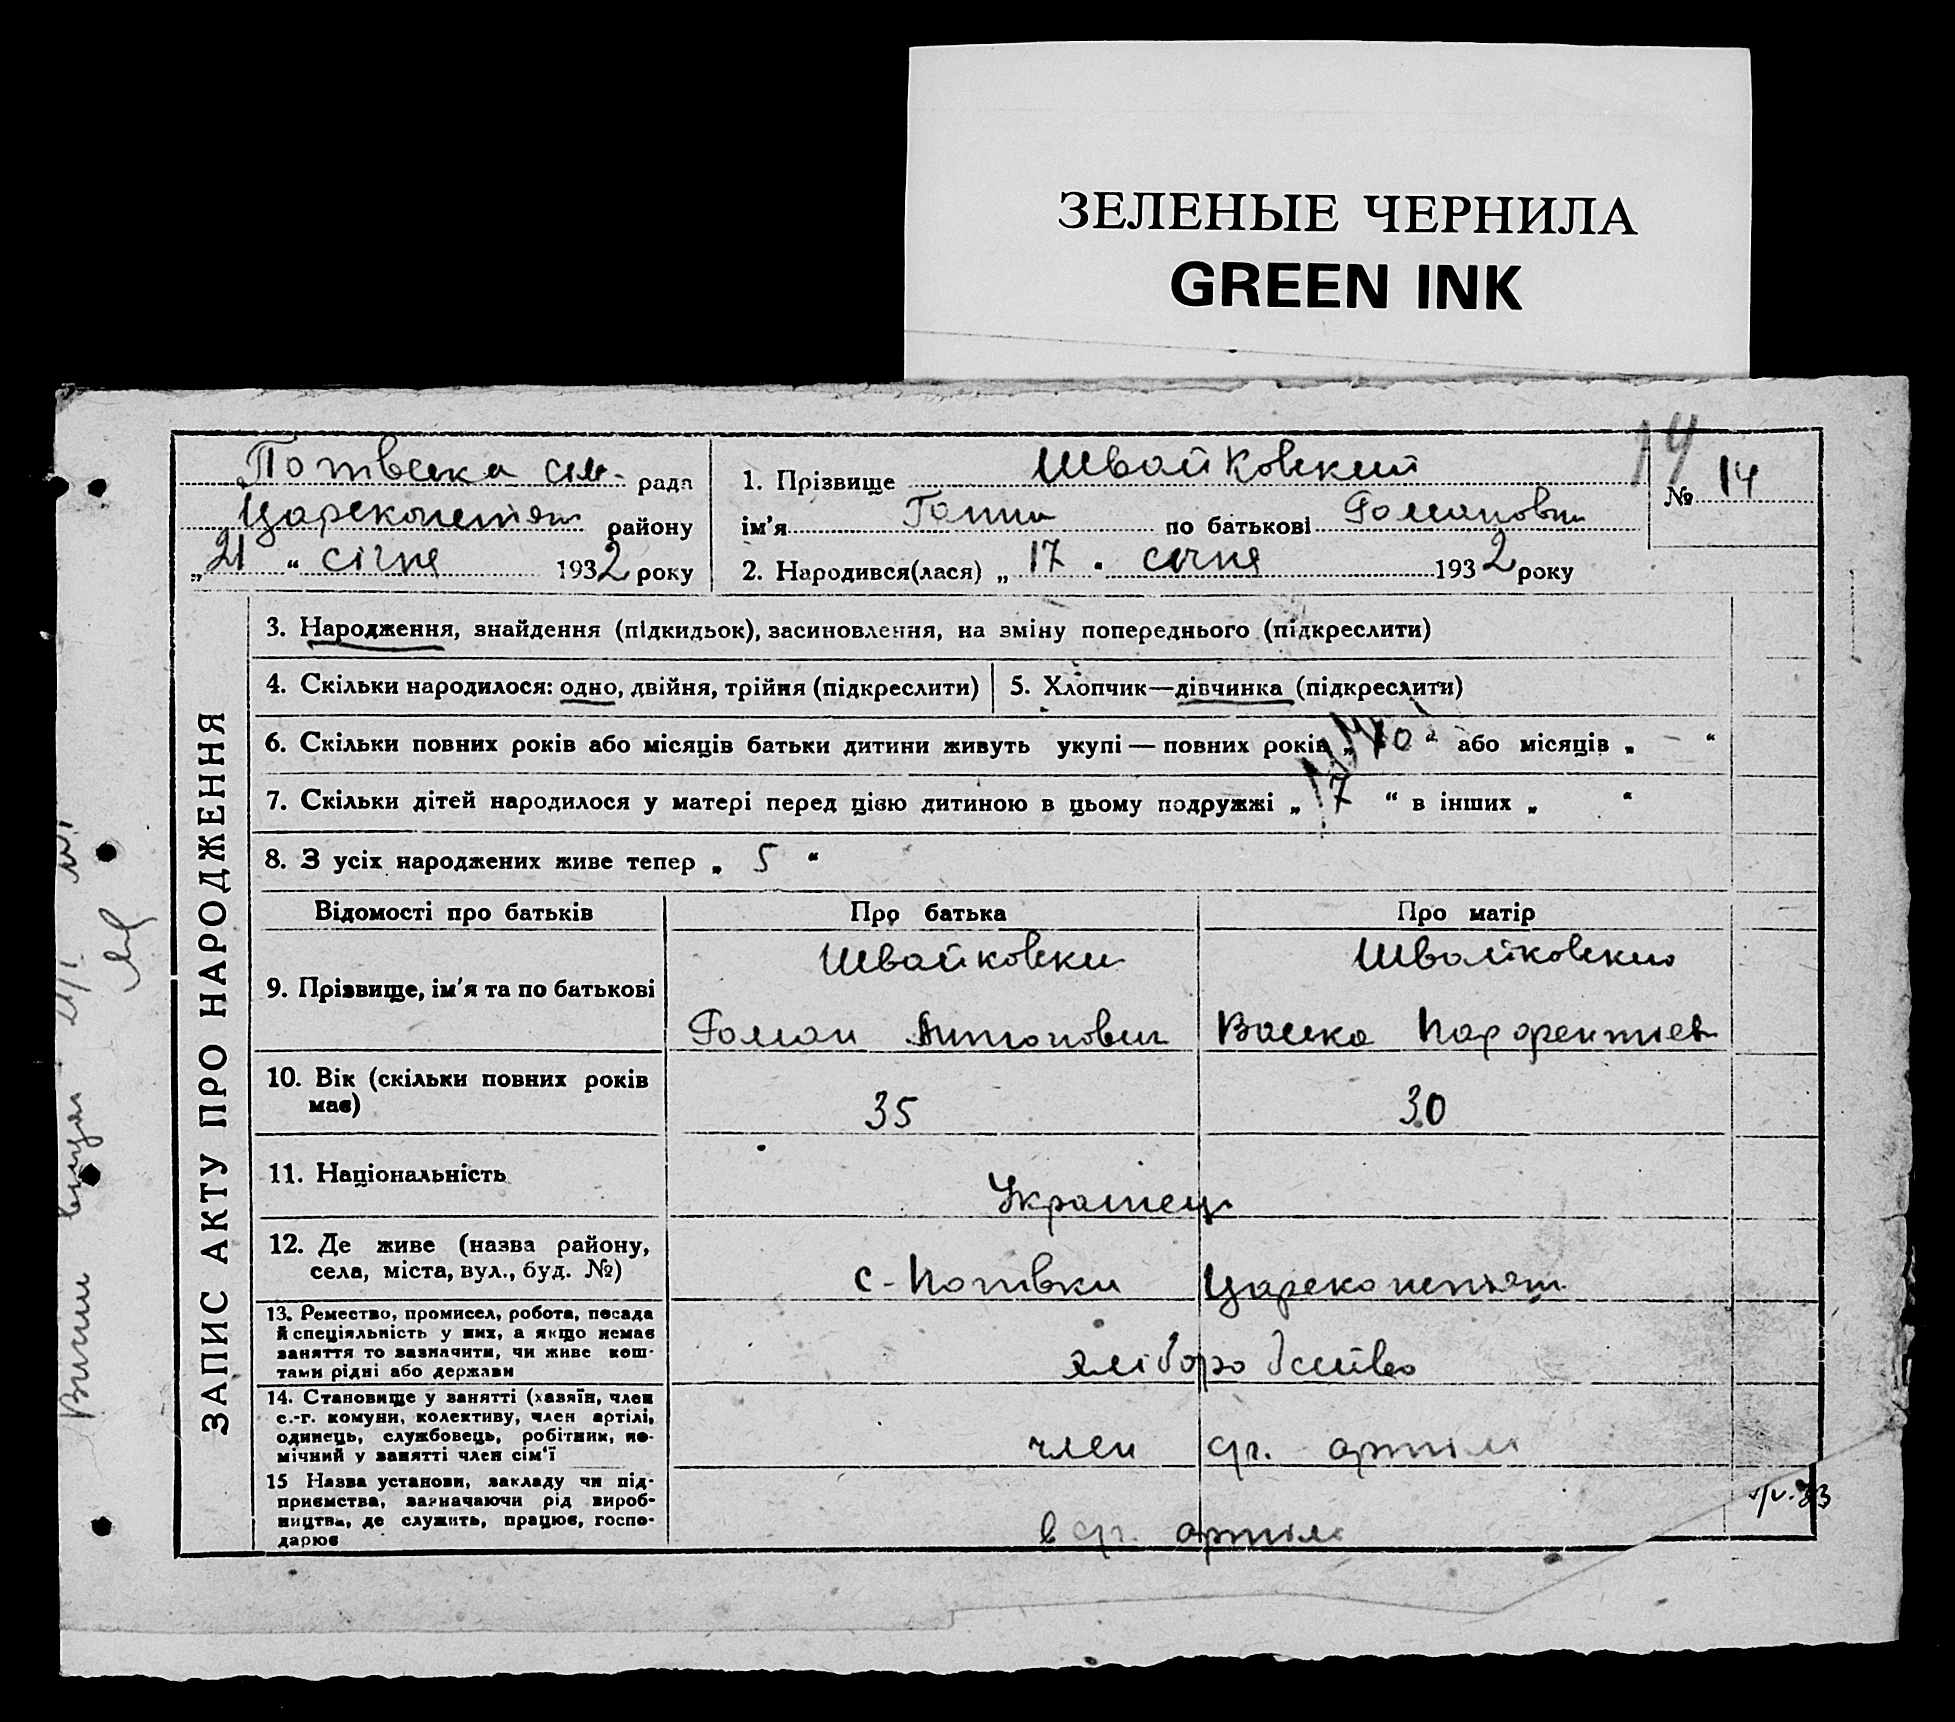 ЗЕЛЕНЫЕ ЧЕРНИЛА
GREEN INK
14
Потвська сіл. рада
Цареконст району
„21“ січня 1932 року
1. Прізвище Швайковский
ім'я Ганна по батькові Романовна
2. Народився(лася) „17“ січня 1932 року
№ 14
ЗАПИС АКТУ ПРО НАРОДЖЕННЯ
3. Народження, знайдення (підкидьок), засиновлення, на зміну попереднього (підкреслити)
4. Скільки народилося: одно, двійня, трійня (підкреслити)
5. Хлопчик—дівчинка (підкреслити)
6. Скільки повних років або місяців батьки дитини живуть укупі — повних років „10“ або місяців „ - “
7. Скільки дітей народилося у матері перед цією дитиною в цьому подружжі „7“ в інших „ “
8. З усіх народжених живе тепер „5“
Відомості про батьків
Про батька
Про матір
9. Прізвище, ім'я та по батькові
Швайковски
Роман Антонович
Швайковська
Парфентіев
10. Вік (скільки повних років
має)
35
30
11. Національність
Українец
12. Де живе (назва району,
села, міста, вул., буд. №)
с-Потівки Цареконст
13. Ремество, промисел, робота, посада
й спеціяльність у них, а якщо немає
заняття то зазначити, чи живе кош-
тами рідні або держави
хліборобство
14. Становище у занятті (хазяїн, член
с.-г. комуни, колективу, член артілі,
одинець, службовець, робітник, по-
мічний у занятті член сім'ї
член с.г. артіли
15 Назва установи, закладу чи під-
приємства, зазначаючи рід вироб-
ництва, де служить, працює, госпо-
дарює
в с.г. артіли